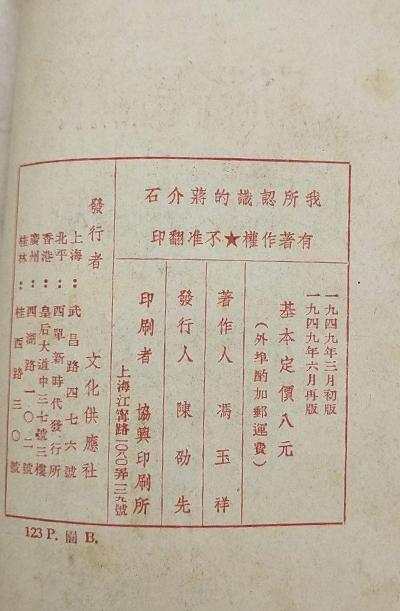 我所認識的蔣介石
有著作權★不准翻印
一九四九年三月初版
一九四九年六月再版
基本定價八元
(外埠酌加郵運費)
著作人 馮玉祥
發行人 陳劭先
印刷者 協興印刷所
上海江甯路一〇八〇弄一三九號
發行者 文化供應社
上海：武昌路四七六號
北平：西單新時代發行所
香港：皇后大道中三七號三樓
廣州：西湖路一〇二號
桂林：桂西路三〇號
123 P. 圖 B.